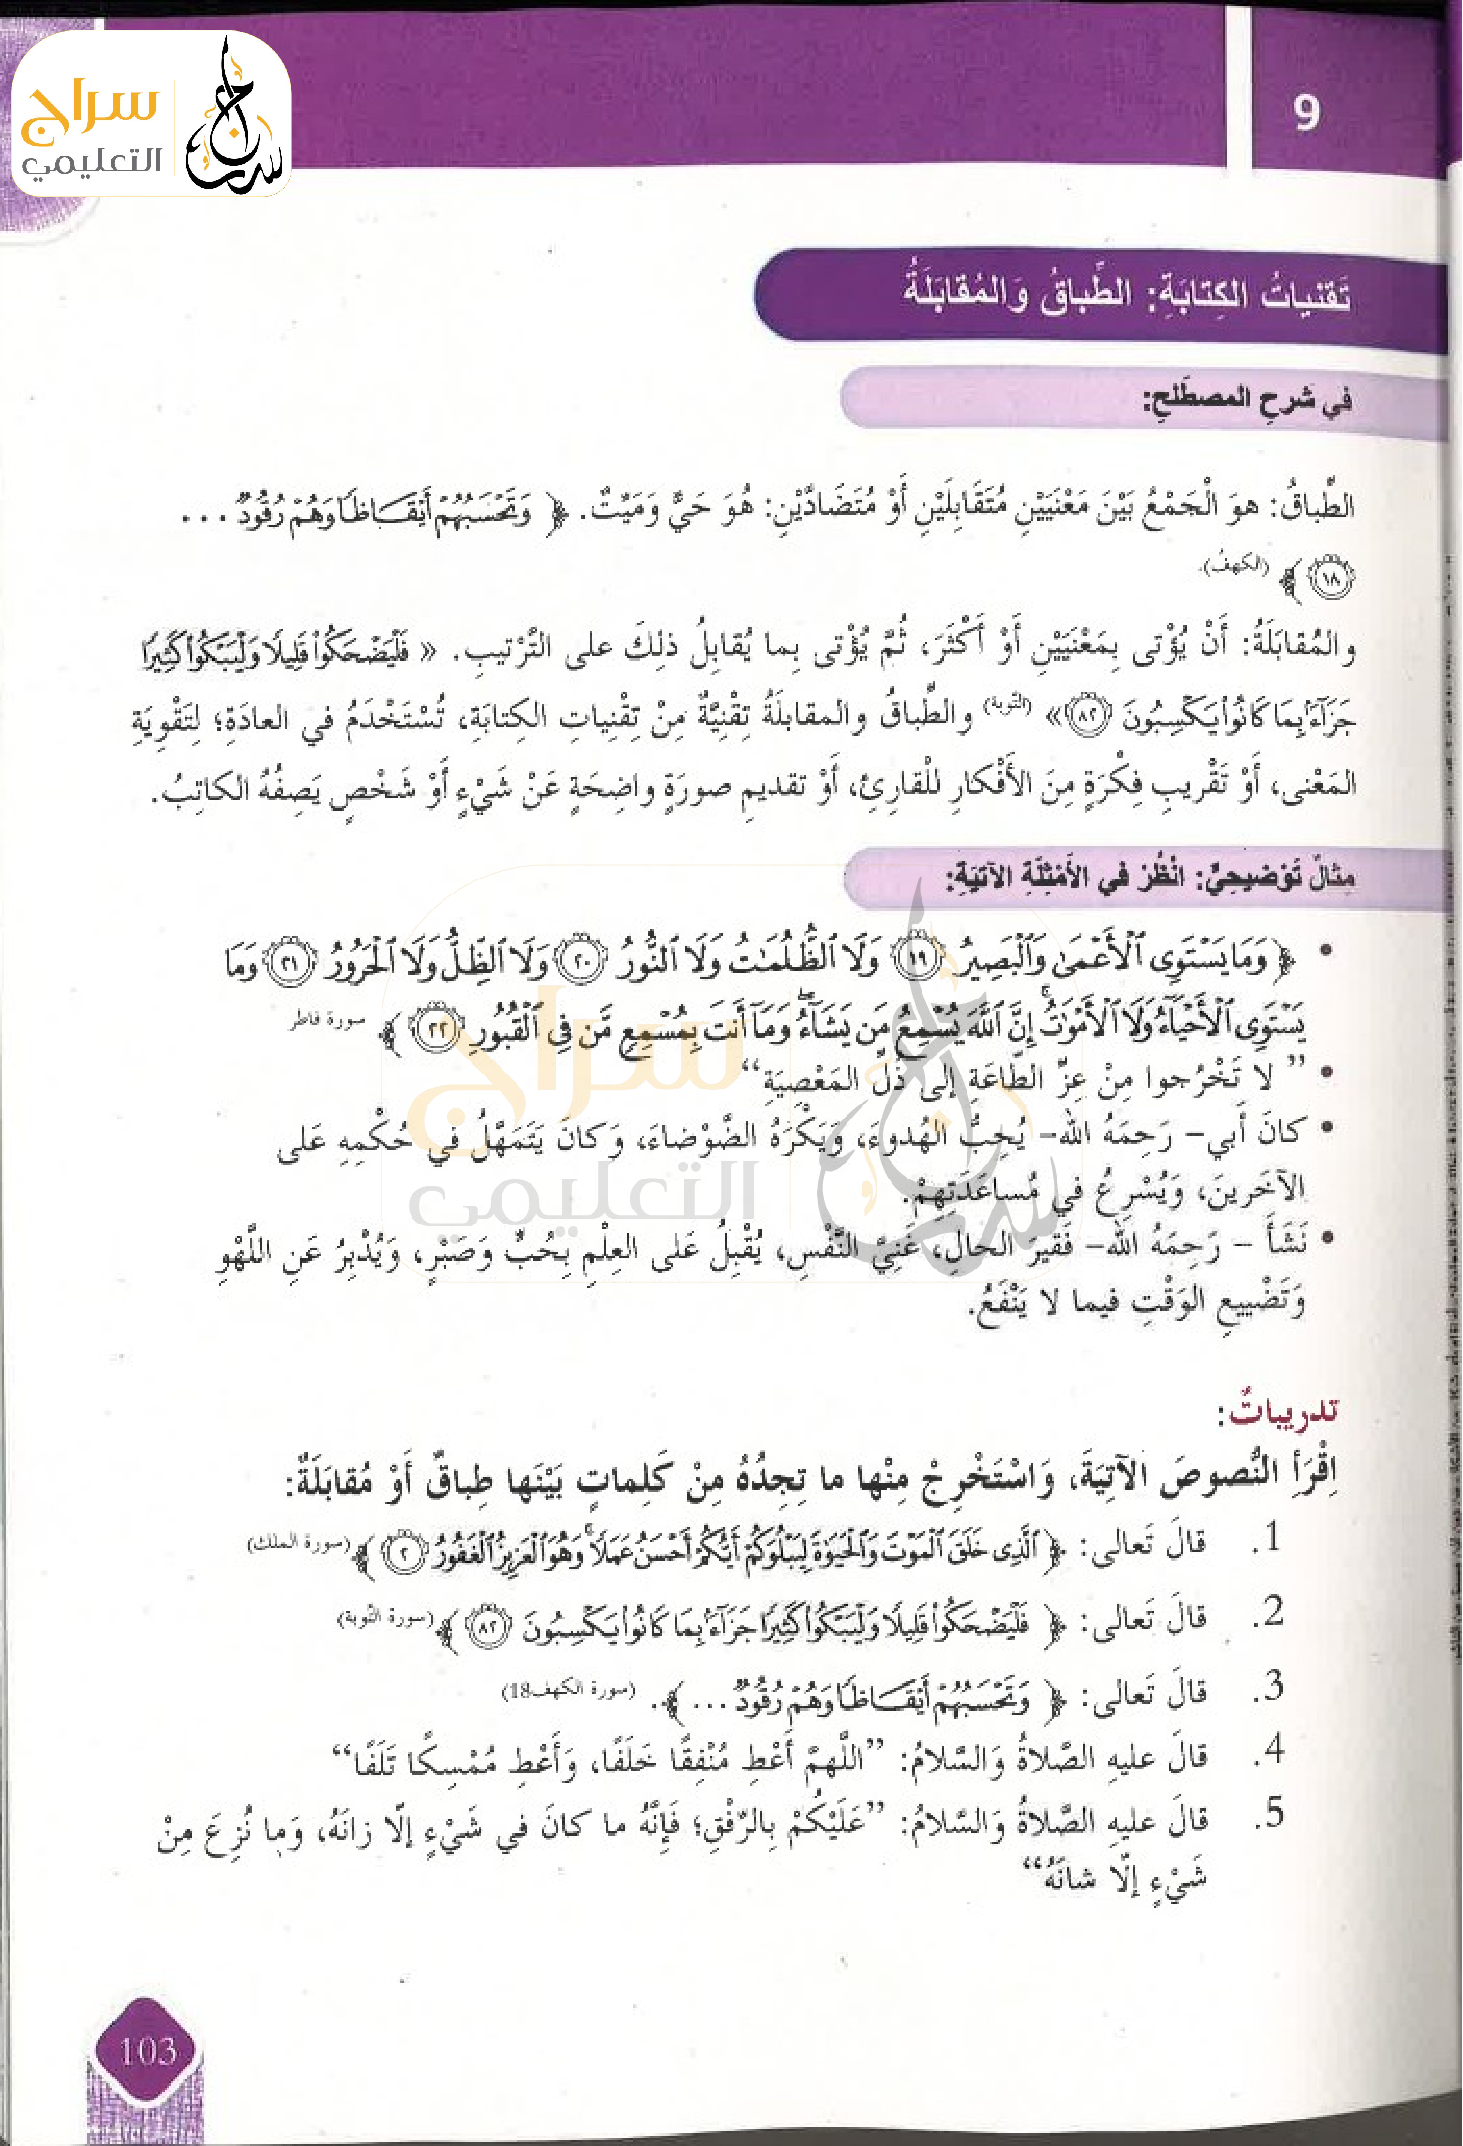 سراج
التعليمي
9
تَقنياتُ الكِتابَةِ: الطِّباقُ وَالمُقابَلَةُ
في شرحِ المصطَلحِ:
الطِّباقُ: هوَ الْجَمْعُ بَيْنَ مَعْنَيَيْنِ مُتَقَابِلَيْنِ أَوْ مُتَضَادَّيْنِ: هُوَ حَيٌّ وَمَيّتٌ. ﴿ وَتَحْسَبُهُمْ أَيْقَاظًا وَهُمْ رُقُودٌ ...
﴿١٨﴾ (الكهف).
والمُقابَلَةُ: أَنْ يُؤْتى بِمَعْنَيَيْنِ أَوْ أَكْثَرَ، ثُمَّ يُؤْتى بِما يُقابِلُ ذلِكَ على التَّرْتيبِ. « فَلْيَضْحَكُوا۟ قَلِيلًا وَلْيَبْكُوا۟ كَثِيرًا
جَزَآءًۢ بِمَا كَانُوا۟ يَكْسِبُونَ ﴿٨٢﴾» (التّوبة) والطِّباقُ والمقابلَةُ تِقْنِيَّةٌ مِنْ تِقْنِياتِ الكِتابَةِ، تُسْتَخْدَمُ في العادَةِ؛ لِتَقْوِيَةِ
المَعْنى، أَوْ تَقْريبِ فِكْرَةٍ مِنَ الأَفْكارِ للْقارِئِ، أَوْ تقديمِ صورَةٍ واضِحَةٍ عَنْ شَيْءٍ أَوْ شَخْصٍ يَصِفُهُ الكاتِبُ.
مِثالٌ تَوْضيحِيٌّ: انْظُرْ في الأَمْثِلَةِ الآتيَةِ:
• ﴿ وَمَا يَسْتَوِى ٱلْأَعْمَىٰ وَٱلْبَصِيرُ ﴿١٩﴾ وَلَا ٱلظُّلُمَٰتُ وَلَا ٱلنُّورُ ﴿٢٠﴾ وَلَا ٱلظِّلُّ وَلَا ٱلْحَرُورُ ﴿٢١﴾ وَمَا
يَسْتَوِى ٱلْأَحْيَآءُ وَلَا ٱلْأَمْوَٰتُ ۚ إِنَّ ٱللَّهَ يُسْمِعُ مَن يَشَآءُ ۖ وَمَآ أَنتَ بِمُسْمِعٍ مَّن فِى ٱلْقُبُورِ ﴿٢٢﴾ ﴾ سورة فاطر
• ”لا تَخْرُجوا مِنْ عِزِّ الطّاعَةِ إلى ذُلِّ المَعْصِيَةِ“
• كانَ أبي- رَحِمَهُ الله- يُحِبُّ الهُدوءَ، وَيَكْرَهُ الضَّوْضاءَ، وَكانَ يَتَمَهَّلُ في حُكْمِهِ عَلى
الآخَرينَ، وَيُسْرِعُ في مُساعَدَتِهِمْ.
• نَشَأَ - رَحِمَهُ الله- فَقيرَ الحالِ، غَنِيَّ النَّفْسِ، يُقْبِلُ عَلى العِلْمِ بِحُبٍّ وَصَبْرٍ، وَيُدْبِرُ عَنِ اللَّهْوِ
وَتَضْييعِ الوَقْتِ فيما لا يَنْفَعُ.
تدريباتٌ:
اِقْرَأِ النُّصوصَ الآتِيَةَ، وَاسْتَخْرِجْ مِنْها ما تجِدُهُ مِنْ كَلِماتٍ بَيْنَها طِباقٌ أَوْ مُقابَلَةٌ:
1. قالَ تَعالى: ﴿ ٱلَّذِى خَلَقَ ٱلْمَوْتَ وَٱلْحَيَوٰةَ لِيَبْلُوَكُمْ أَيُّكُمْ أَحْسَنُ عَمَلًا ۚ وَهُوَ ٱلْعَزِيزُ ٱلْغَفُورُ ﴿٢﴾ ﴾ (سورة الملك)
2. قالَ تَعالى: ﴿ فَلْيَضْحَكُوا۟ قَلِيلًا وَلْيَبْكُوا۟ كَثِيرًا جَزَآءًۢ بِمَا كَانُوا۟ يَكْسِبُونَ ﴿٨٢﴾ ﴾ (سورة التّوبة)
3. قالَ تَعالى: ﴿ وَتَحْسَبُهُمْ أَيْقَاظًا وَهُمْ رُقُودٌ ... ﴾. (سورة الكهف18)
4. قالَ عليهِ الصَّلاةُ وَالسَّلامُ: ”اللَّهمَّ أَعْطِ مُنْفِقًا خَلَفًا، وَأَعْطِ مُمْسِكًا تَلَفًا“
5. قالَ عليهِ الصَّلاةُ وَالسَّلامُ: ”عَلَيْكُمْ بِالرِّفْقِ؛ فَإِنَّهُ ما كانَ في شَيْءٍ إلّا زانَهُ، وَما نُزِعَ مِنْ
شَيْءٍ إلّا شانَهُ“
103